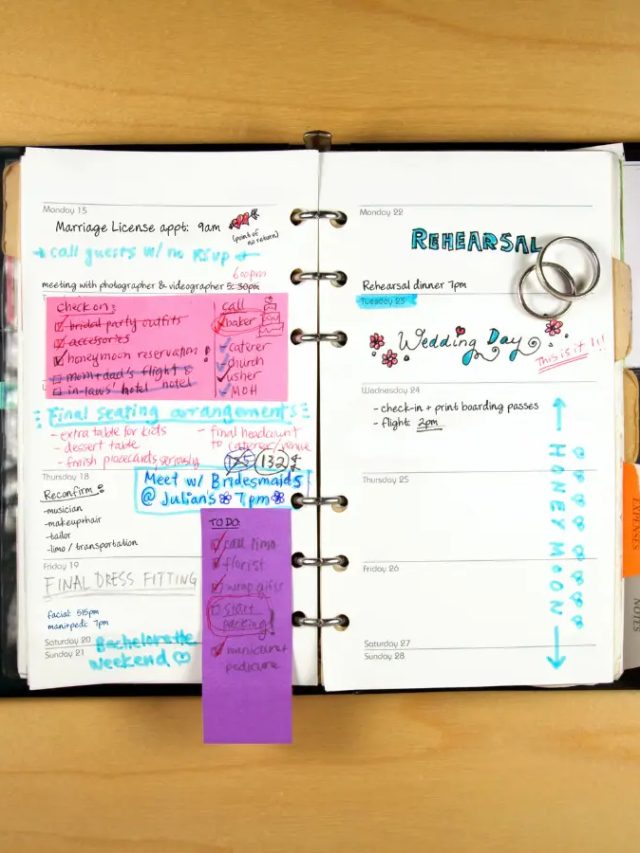 Monday 15
Marriage License appt: 9am
(point of no return)
call guests w/ no RSVP
6:00pm
meeting with photographer & videographer 5:30pm
check on:
bridal party outfits
accesories
honeymoon reservation!
mom+dad's flight &
in-laws' hotel hotel
call
baker
caterer
church
usher
MOH
Final seating arrangements
- extra table for kids
- dessert table
- finish placecards seriously
- final headcount
to caterer/venue
125 132
Meet w/ Bridesmaids
@ Julian's 7pm
Thursday 18
Reconfirm:
-musician
-makeup+hair
-tailor
-limo / transportation
Friday 19
FINAL DRESS FITTING
facial 515pm
mani+pedi 7pm
Saturday 20
Sunday 21
Bachelorette
Weekend
TO DO:
call limo
florist
wrap gifts
start
packing!
manicure+
pedicure
Monday 22
REHEARSAL
Rehearsal dinner 7pm
Tuesday 23
Wedding Day
This is it!!!
Wednesday 24
- check-in + print boarding passes
- flight: 2pm
Thursday 25
Friday 26
Saturday 27
Sunday 28
HONEYMOON
EXPENSES
NOTES